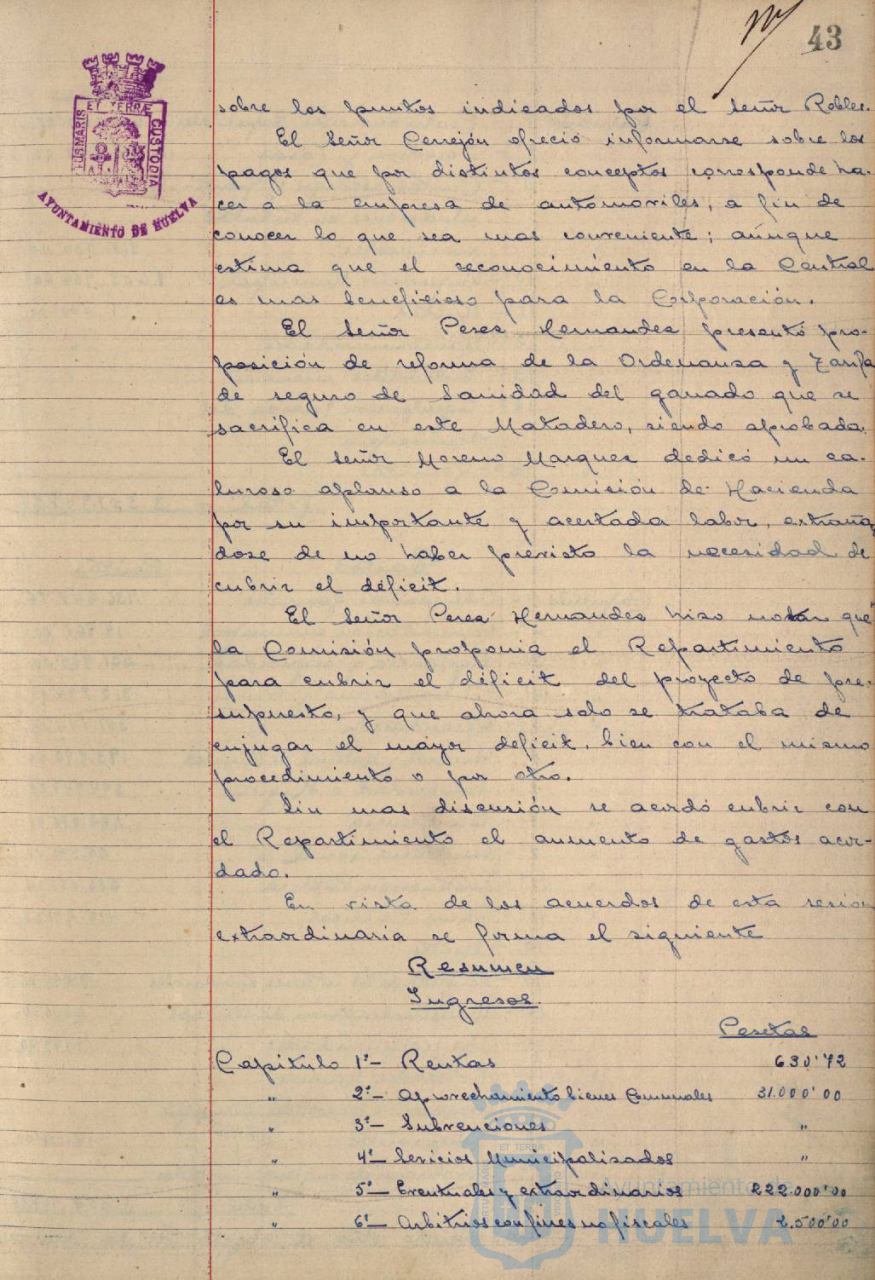 43
PORTUS MARIS ET TERRÆ CUSTODIA
AYUNTAMIENTO DE HUELVA
sobre los puntos indicados por el Señor Robles.
El Señor Cerrejón ofreció informarse sobre los
pagos que por distintos conceptos corresponde ha-
cer a la empresa de automoviles, a fin de
conocer lo que sea mas conveniente; aúnque
estima que el reconocimiento en la Central
es mas beneficioso para la Corporación.
El Señor Perez Hernandez presentó pro-
posición de reforma de la Ordenanza y Tarifa
de seguro de Sanidad del ganado que se
sacrifica en este Matadero, siendo aprobada.
El Señor Moreno Marquez dedicó un ca-
luroso aplauso a la Comisión de Hacienda
por su importante y acertada labor, extrañan
dose de no haber previsto la necesidad de
cubrir el déficit.
El Señor Perez Hernandez hizo notar que
la Comisión proponia el Repartimiento
para cubrir el déficit del proyecto de pre-
supuesto, y que ahora solo se trataba de
enjugar el mayor deficit, bien con el mismo
procedimiento o por otro.
Sin mas discusión se acordó cubrir con
el Repartimiento el aumento de gastos acor-
dado.
En vista de los acuerdos de esta sesión
extraordinaria se forma el siguiente
Resumen
Ingresos.
Pesetas
Capitulo 1º- Rentas 630'72
" 2º- Aprovechamiento bienes Comunales 31.000'00
" 3º- Subvenciones "
" 4º- Servicios Municipalizados "
" 5º- Eventuales y extraordinarios 222.000'00
" 6º- Arbitrios con fines no fiscales 2.500'00
Ayuntamiento de
HUELVA